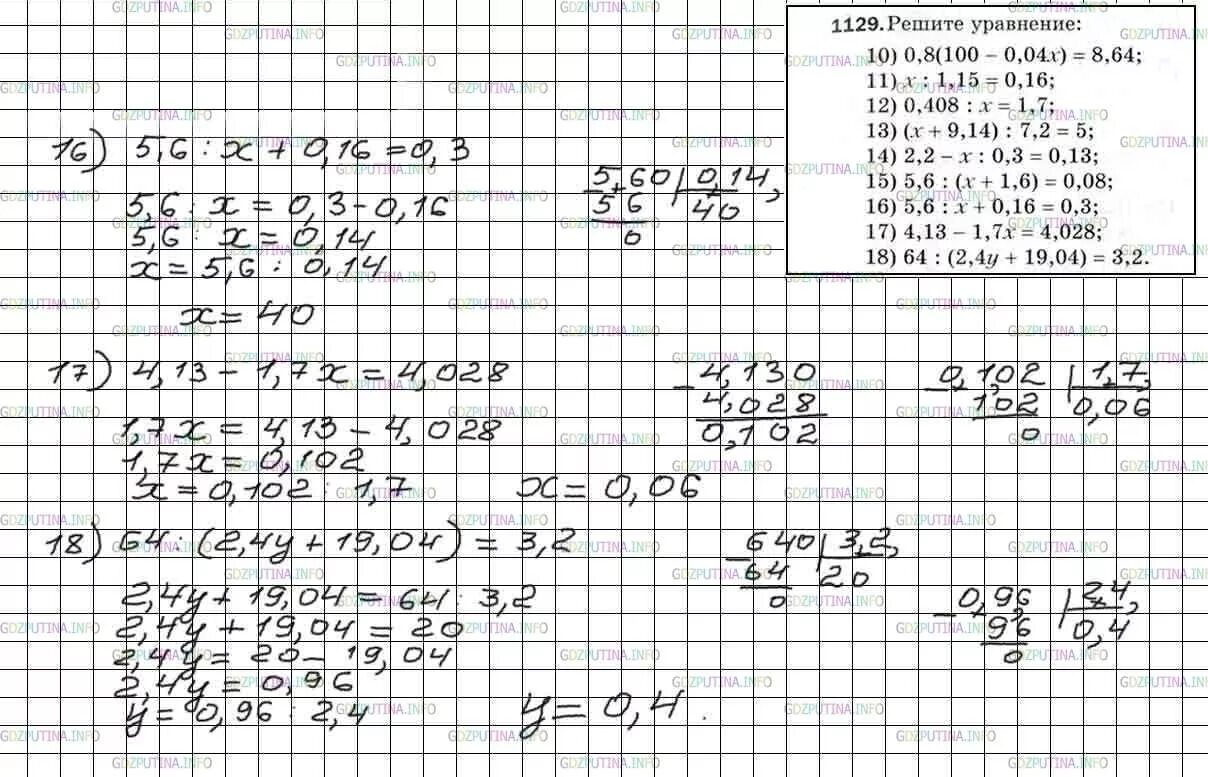 1129. Решите уравнение:
10) 0,8(100 − 0,04x) = 8,64;
11) x : 1,15 = 0,16;
12) 0,408 : x = 1,7;
13) (x + 9,14) : 7,2 = 5;
14) 2,2 − x : 0,3 = 0,13;
15) 5,6 : (x + 1,6) = 0,08;
16) 5,6 : x + 0,16 = 0,3;
17) 4,13 − 1,7x = 4,028;
18) 64 : (2,4y + 19,04) = 3,2.
16) 5,6 : x + 0,16 = 0,3
5,6 : x = 0,3 − 0,16
5,6 : x = 0,14
x = 5,6 : 0,14
x = 40
5,60 | 0,14
56 | 40
0
17) 4,13 − 1,7x = 4,028
1,7x = 4,13 − 4,028
1,7x = 0,102
x = 0,102 : 1,7 x = 0,06
− 4,130
4,028
0,102
− 0,102 | 1,7
102 | 0,06
0
18) 64 : (2,4y + 19,04) = 3,2
2,4y + 19,04 = 64 : 3,2
2,4y + 19,04 = 20
2,4y = 20 − 19,04
2,4y = 0,96
y = 0,96 : 2,4 y = 0,4.
− 640 | 3,2
64 | 20
0
− 0,96 | 2,4
96 | 0,4
0
GDZPUTINA.INFO